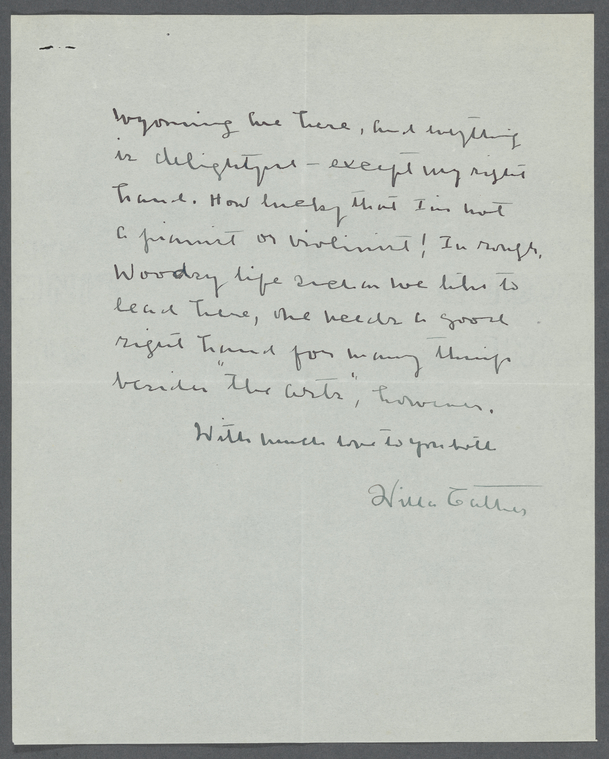 Wyoming are here, and everything
is delightful — except my right
hand. How lucky that I'm not
a pianist or violinist! In rough,
Woodsy life such as we like to
lead here, one needs a good
right hand for many things
besides "the arts", however.
With much love to you both
Willa Cather